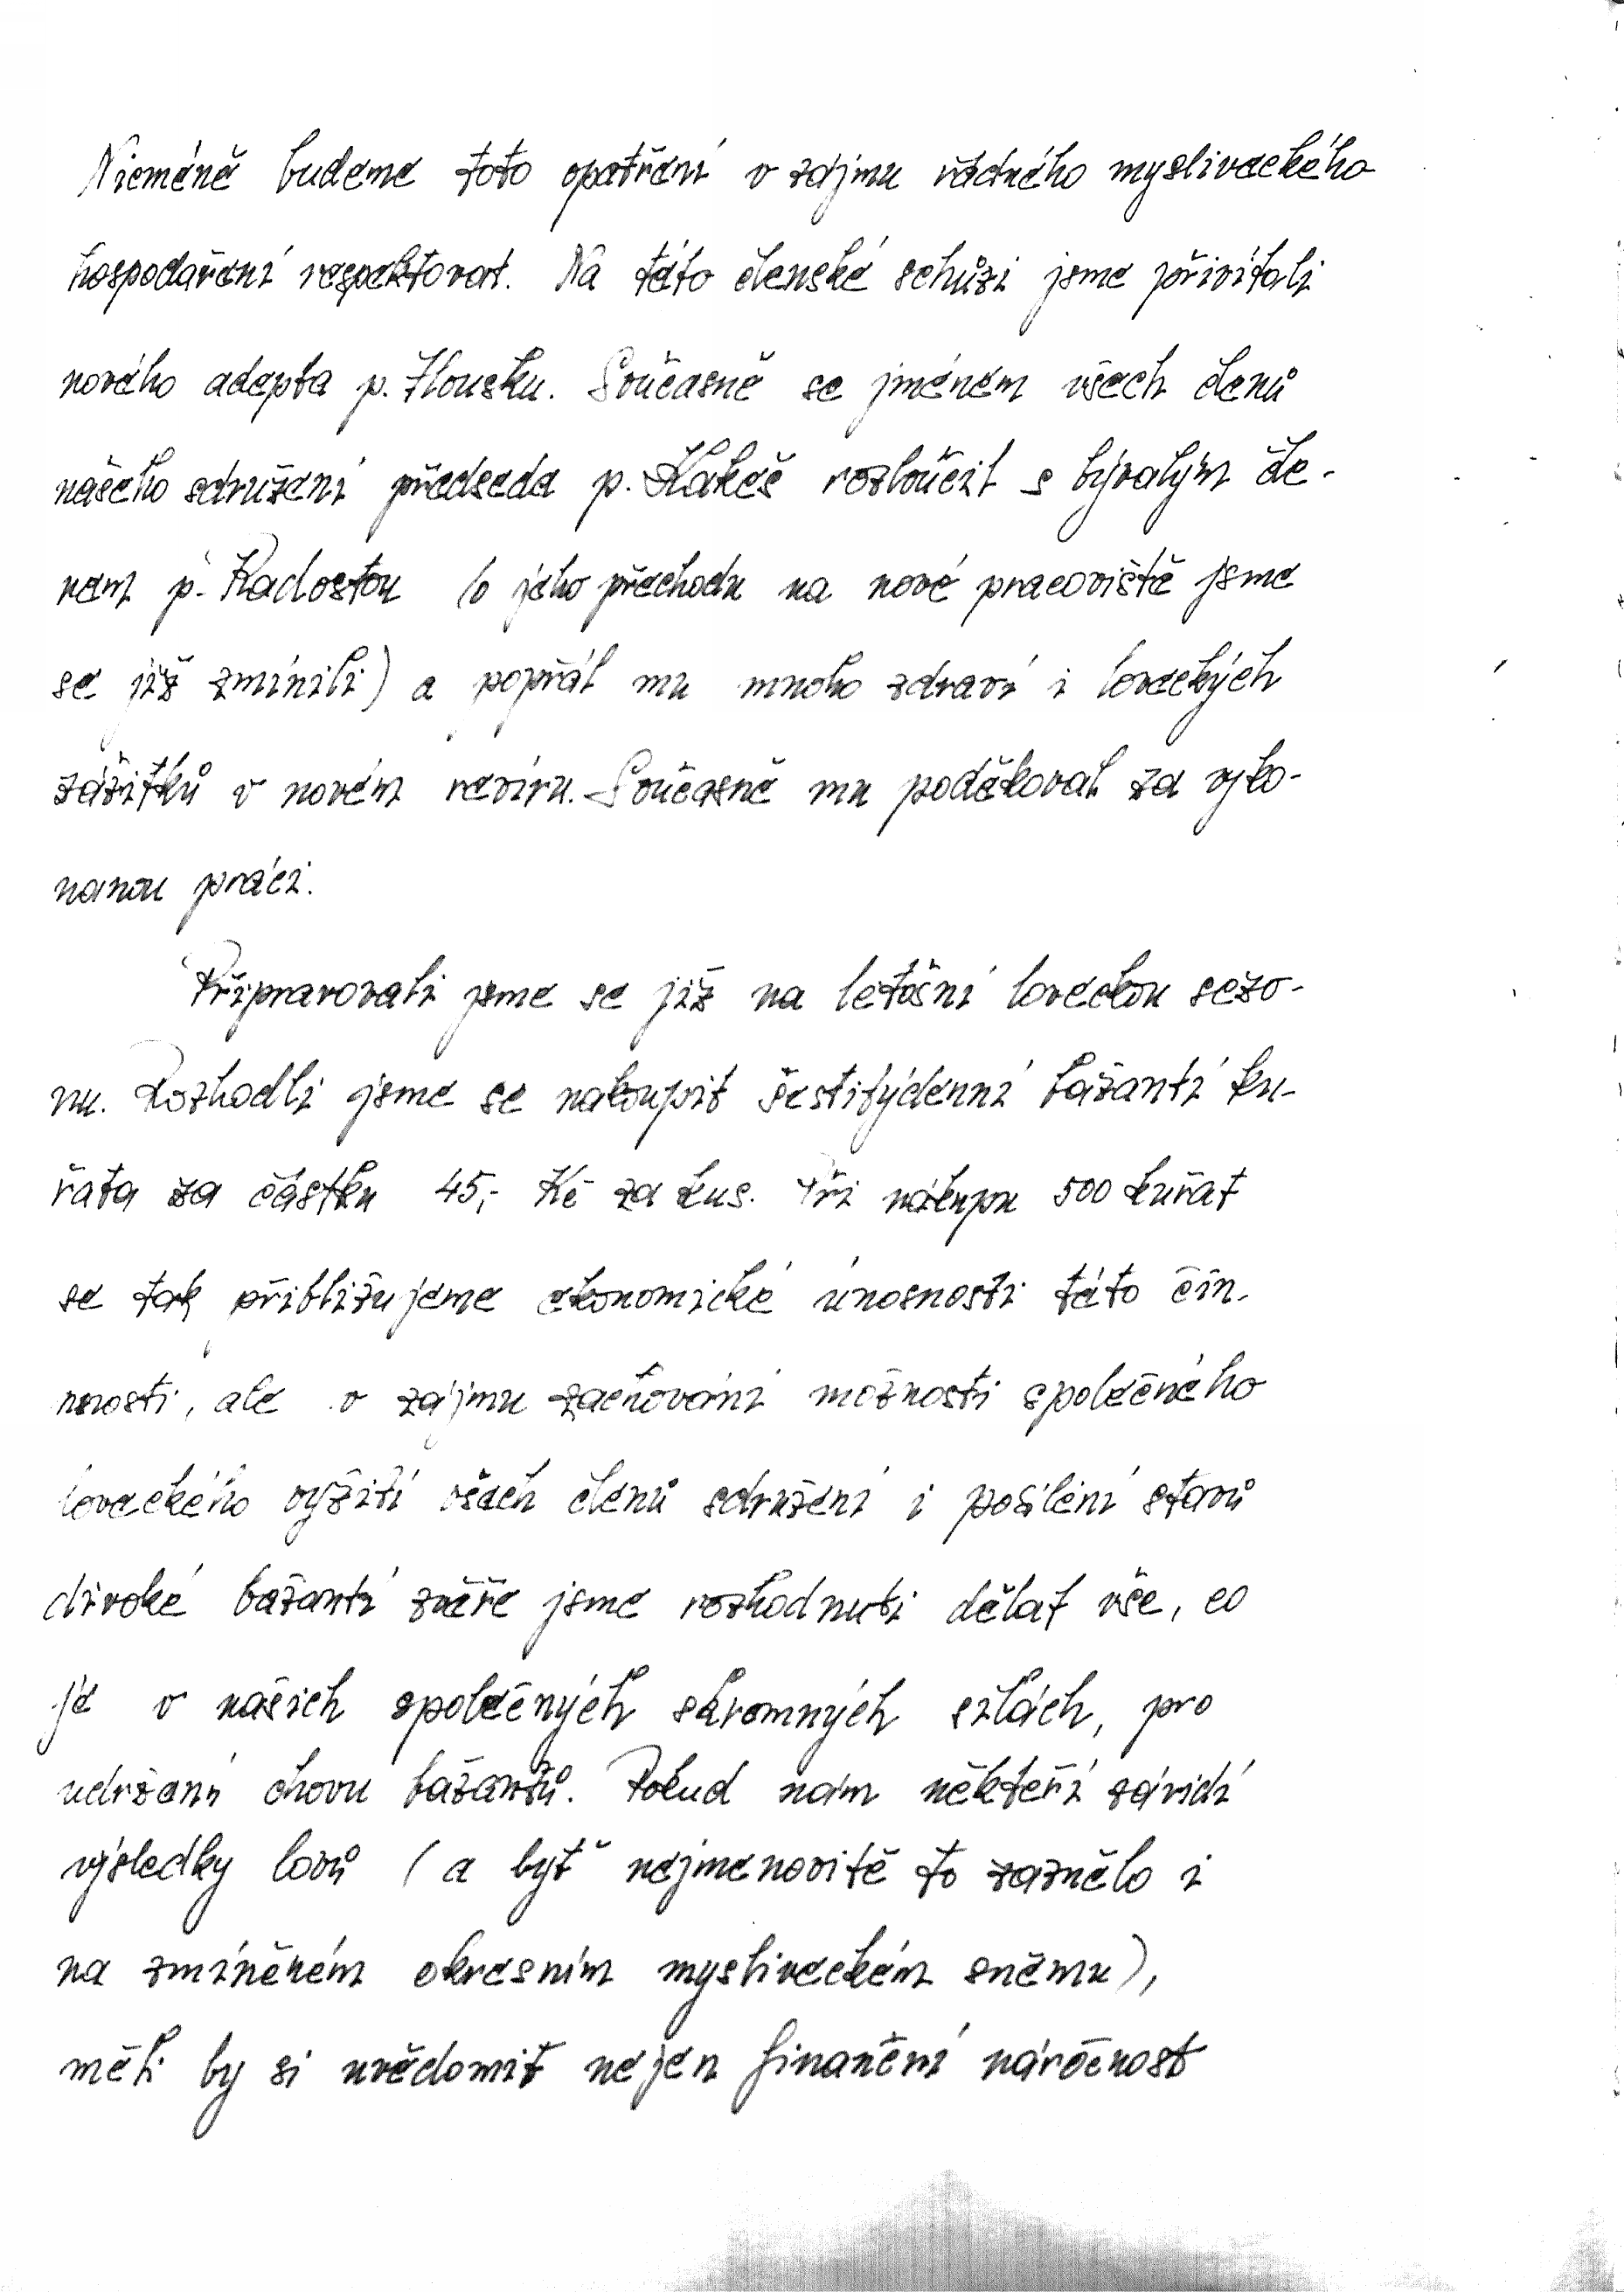 Nicméně budeme toto opatření v zájmu řádného mysliveckého
hospodaření respektovat. Na této členské schůzi jsme přivítali
nového adepta p. Housku. Současně se jménem všech členů
našeho sdružení předseda p. Kakeš rozloučil s bývalým čle-
nem p. Radostou (o jeho přechodu na nové pracoviště jsme
se již zmínili) a popřál mu mnoho zdraví i loveckých
zážitků v novém revíru. Současně mu poděkoval za vyko-
nanou práci.
Připravovali jsme se již na letošní loveckou sezo-
nu. Rozhodli jsme se nakoupit šestitýdenní bažantí ku-
řata za částku 45,- Kč za kus. Při nákupu 500 kuřat
se tak přibližujeme ekonomické únosnosti této čin-
nosti, ale v zájmu zachování možnosti společného
loveckého vyžití všech členů sdružení i posílení stavů
divoké bažantí zvěře jsme rozhodnuti dělat vše, co
je v našich společných skromných silách, pro
udržení chovu bažantů. Pokud nám někteří závidí
výsledky lovů (a byť nejmenovitě to zaznělo i
na zmíněném okresním mysliveckém sněmu),
měli by si uvědomit nejen finanční náročnost